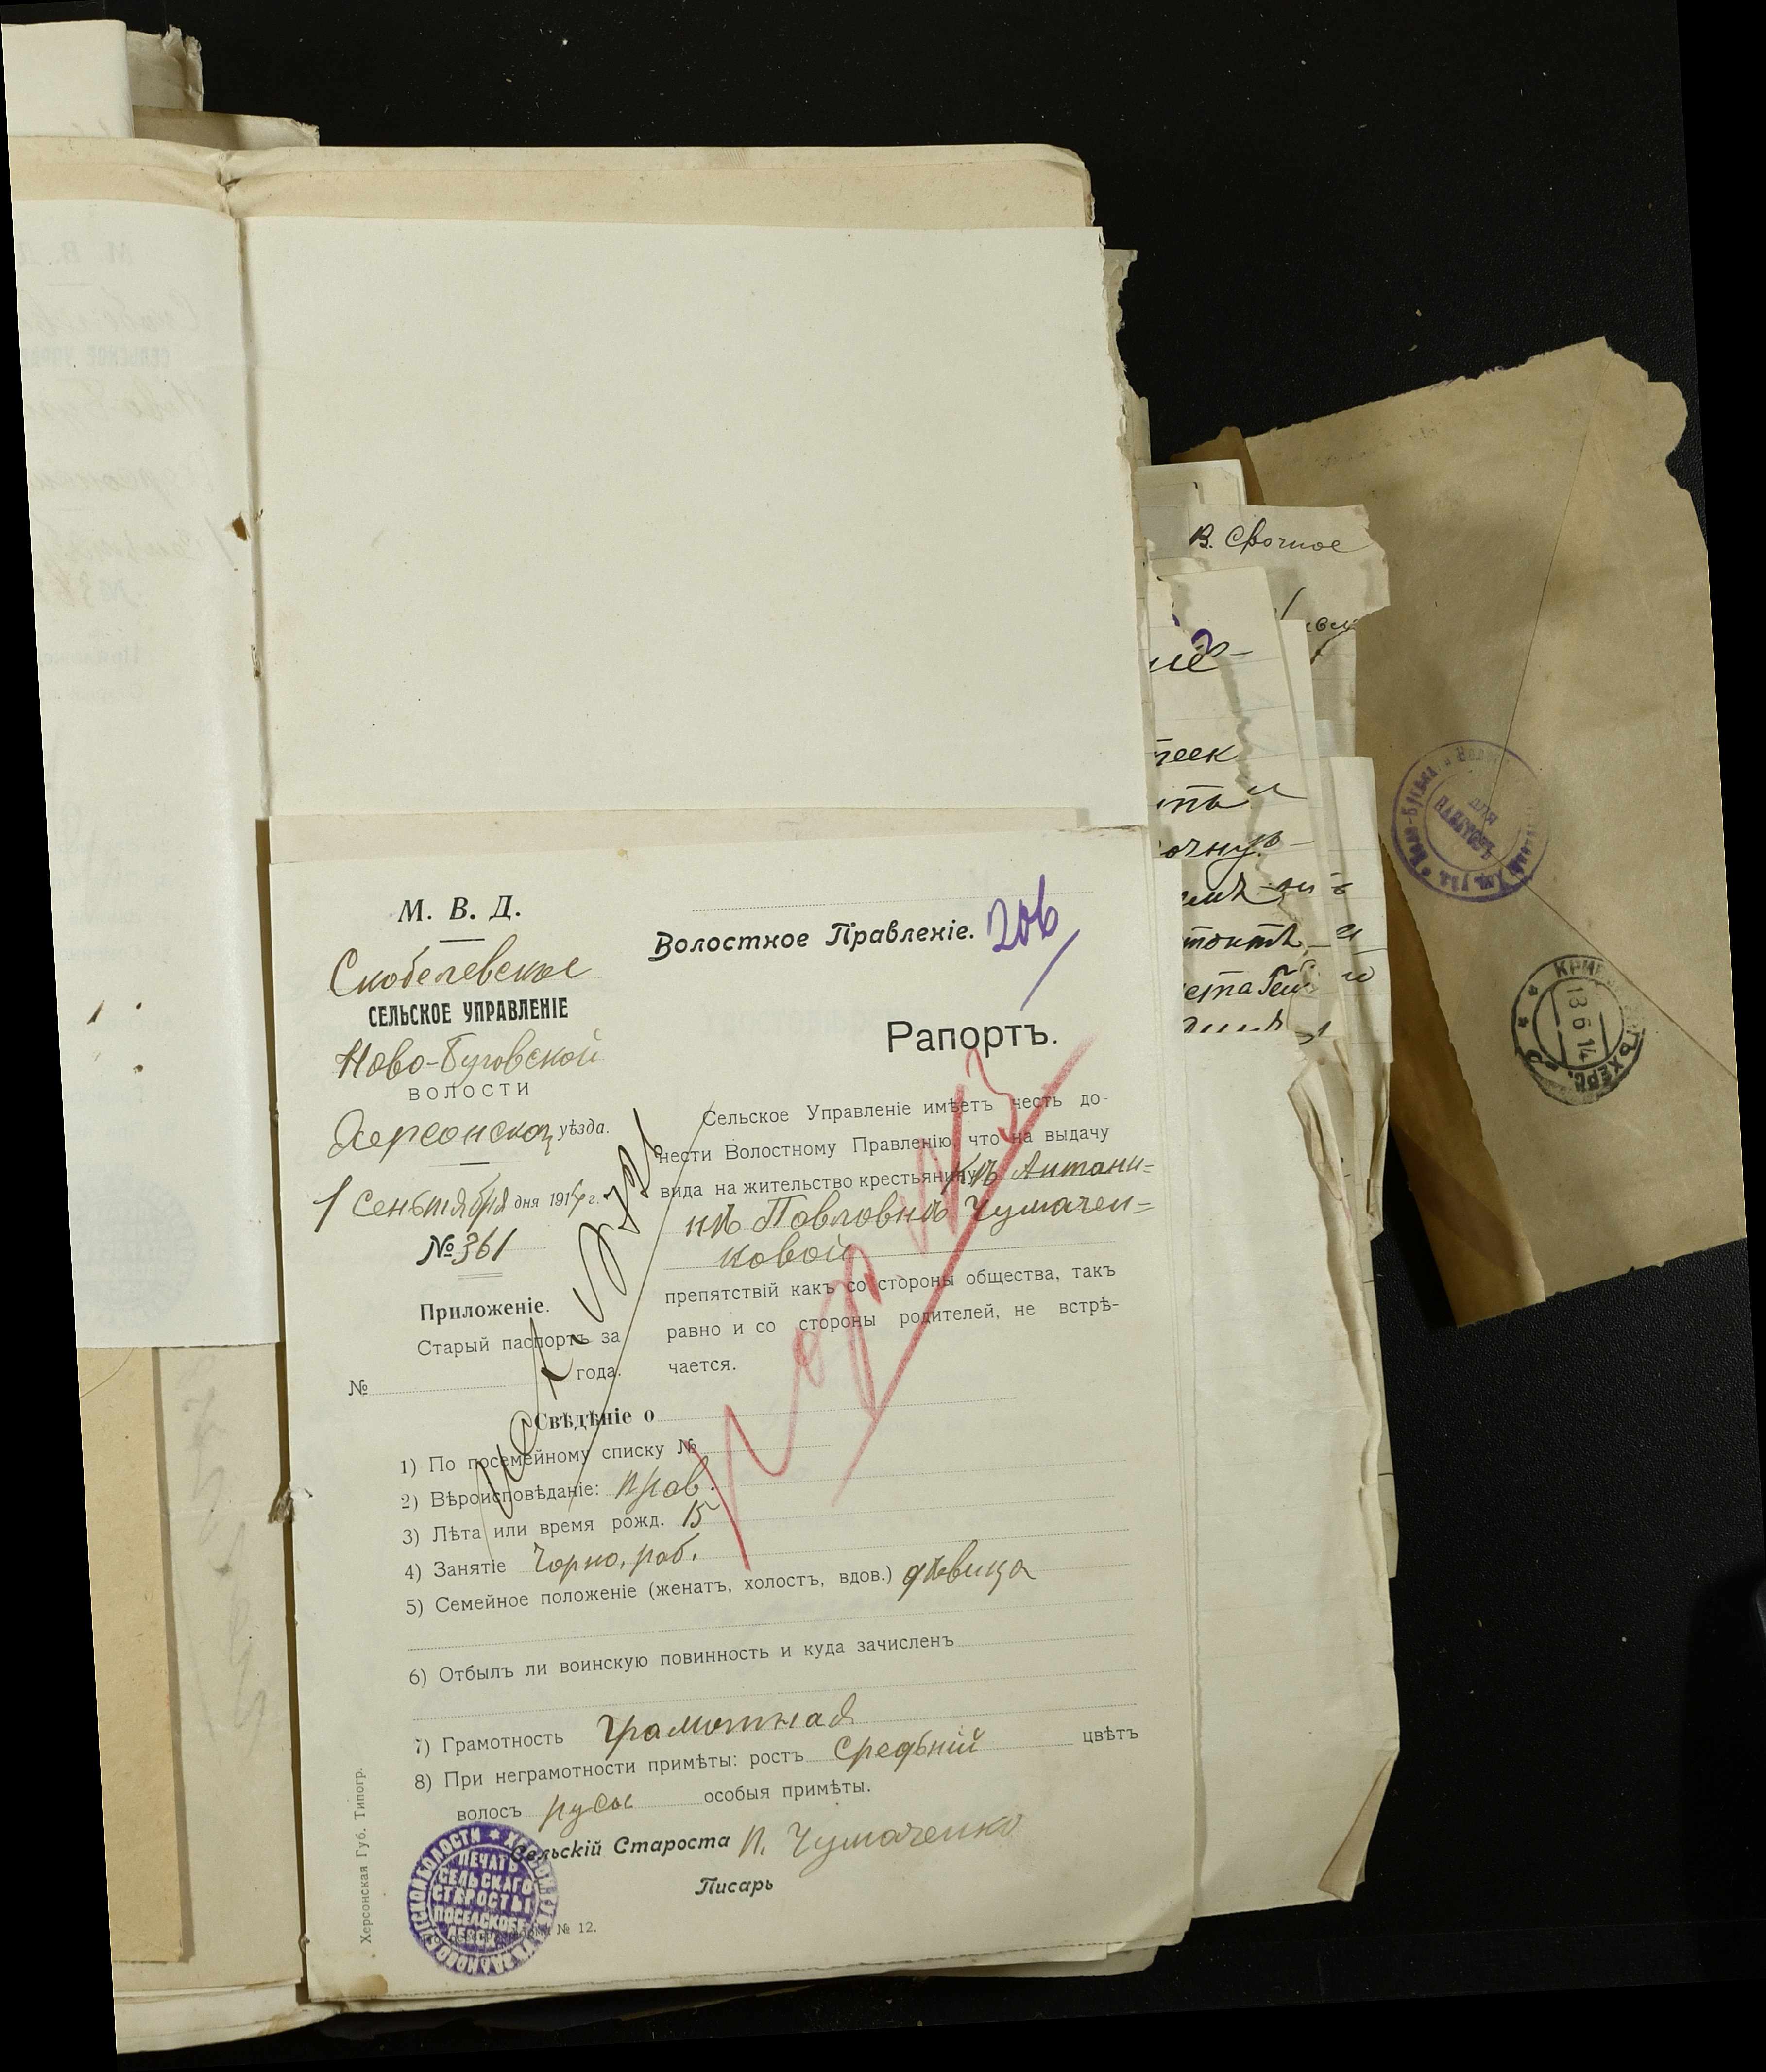 М. В. Д.
Скобелевское
СЕЛЬСКОЕ УПРАВЛЕНІЕ
Ново-Буговской
ВОЛОСТИ
Херсонскаго уѣзда.
1 Сеньтября дня 1914 г.
№ 361
Приложеніе.
Старый паспортъ за
года.
№
Волостное Правленіе.
206
Рапортъ.
Сельское Управленіе имѣетъ честь до-
нести Волостному Правленію, что на выдачу
вида на жительство крестьянину кѣ Антани-
нѣ Повловнѣ Чумачен-
ковой
препятствій какъ со стороны общества, такъ
равно и со стороны родителей, не встрѣ-
чается.
Свѣдѣніе о
1) По посемейному списку №
2) Вѣроисповѣданіе: прав.
3) Лѣта или время рожд. 15
4) Занятіе Чорно. раб.
5) Семейное положеніе (женатъ, холостъ, вдов.) дѣвица
6) Отбылъ ли воинскую повинность и куда зачисленъ
7) Грамотность Грамотная
8) При неграмотности примѣты: ростъ Средьній цвѣтъ
волосъ русы особыя примѣты.
Сельскій Староста П. Чумаченко
Писарь
№ 12.
Херсонская Губ. Типогр.
ПЕЧАТЬ
СЕЛЬСКАГО
СТАРОСТЫ
В. Срочное
ДЛЯ
ПАКЕТОВЪ
13 6 14
ХЕРС.